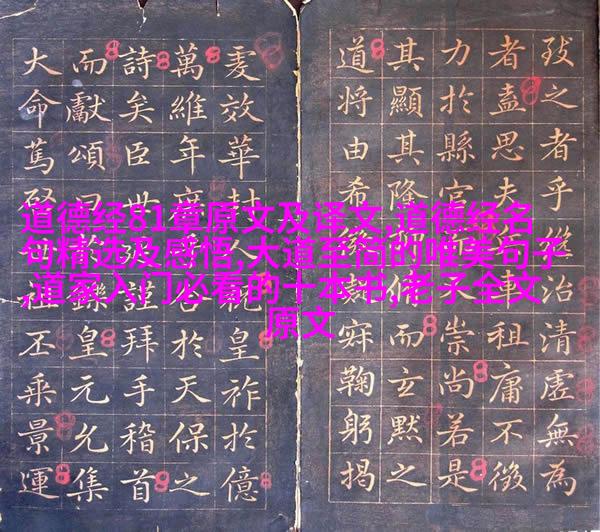 道德经81章原文及译文,道德经名
句精选及感悟,大道至简的唯美句子
,道家入门必看的十本书,老子全文
原文
之者乎治清虛無為
者盍思夫車租庸不徵
力於縣官人崇尚若是
其顯其隆而玄默之
道將由希鞠躬揭
效華封人祝皇祚於億
萬維年於天保之
詩矣臣世謹拜手稽首
而獻頌曰鑠皇元允集
大命篤丕乘景運